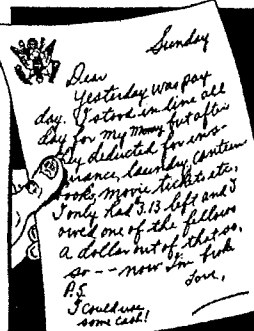 Sunday
Dear
Yesterday was pay
day. I stood in line all
day for my money but after
they deducted for ins-
urance, laundry, canteen
books, movie tickets etc.
I only had 3.13 left and I
owed one of the fellows
a dollar out of that so,
so -- now I'm broke
Love,
P.S
I could use
some cash!